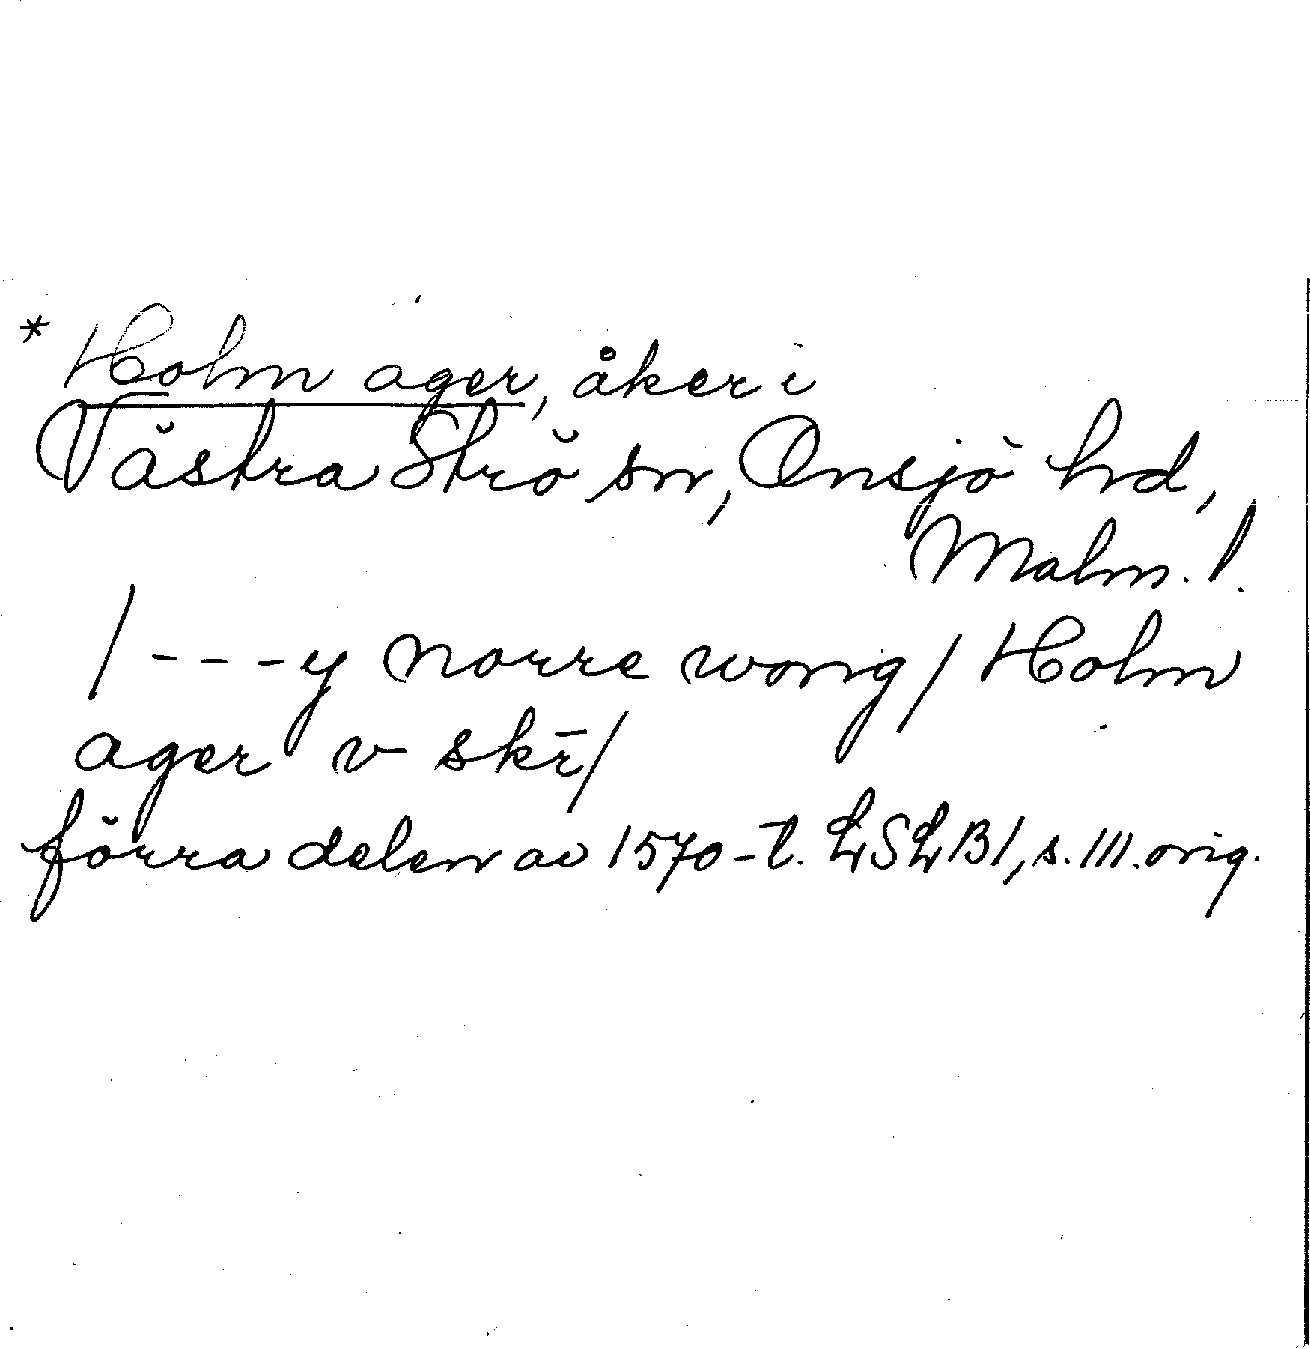 * Holm ager, åker i
Västra Strö sn, Onsjö hd,
Malm. l.
/ - - - y norre wong / Holm
ager v skr̄ /
förra delen av 1570-t. LSLB1, s. 111. orig.